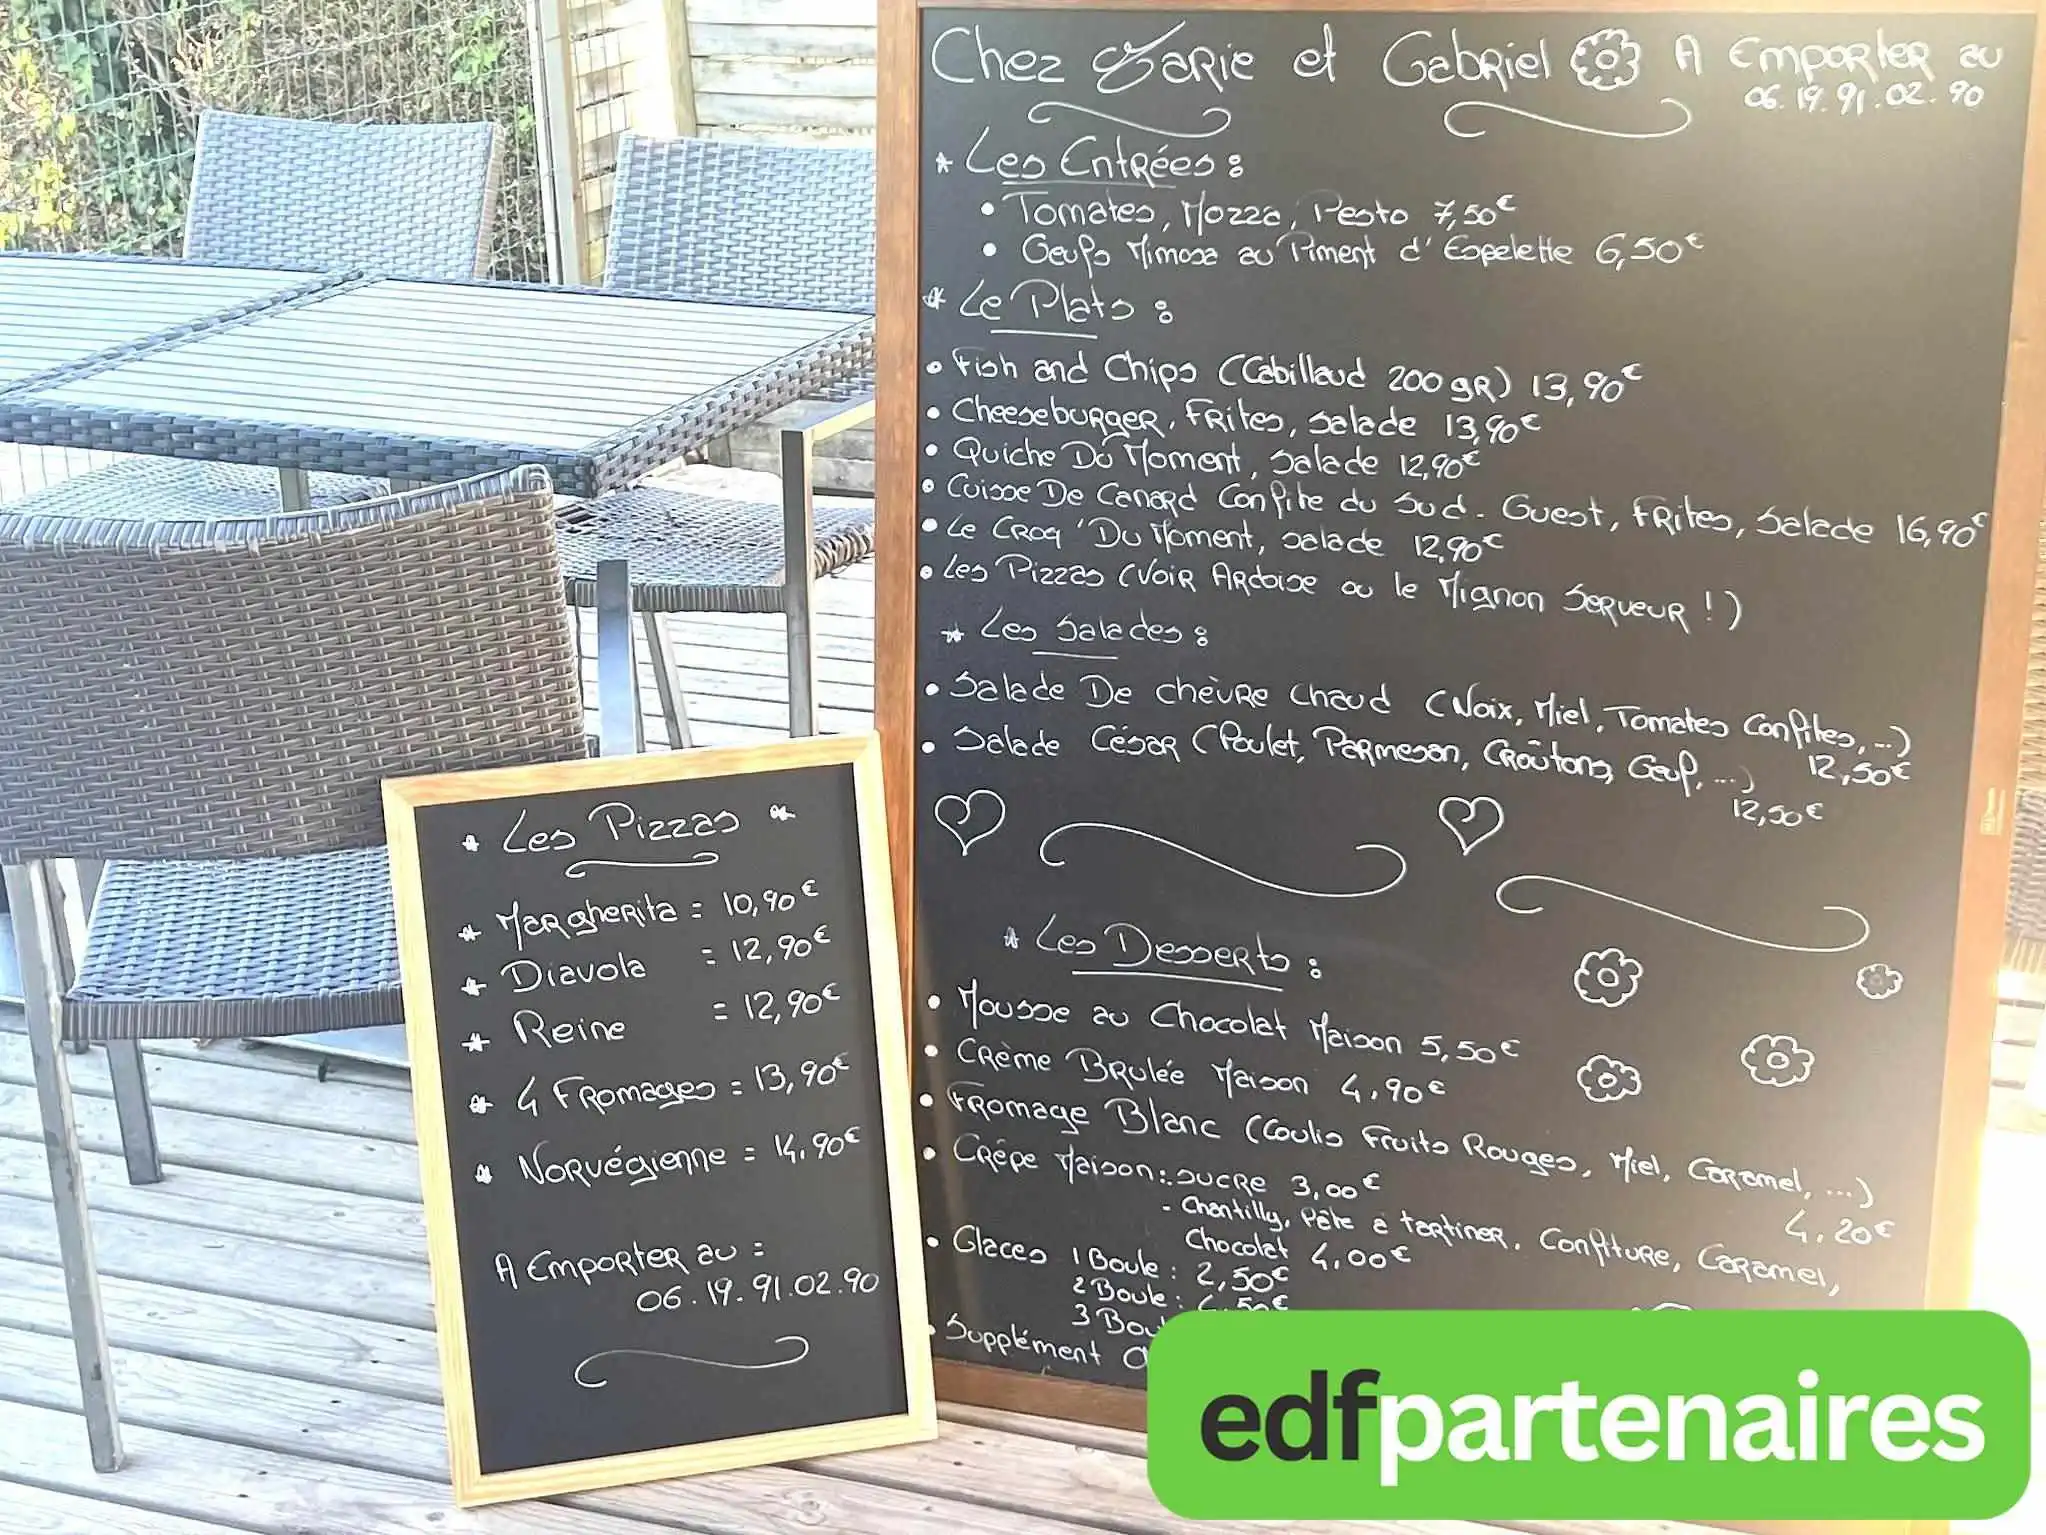 Chez Marie et Gabriel A Emporter au
06.19.91.02.90
* Les Entrées :
• Tomates, Mozza, Pesto 7,50€
• Oeufs Mimosa au Piment d'Espelette 6,50€
* Le Plats :
• Fish and Chips (Cabillaud 200 gr) 13,90€
• Cheeseburger, Frites, Salade 13,90€
• Quiche Du Moment, Salade 12,90€
• Cuisse De Canard Confite du Sud-Ouest, Frites, Salade 16,90€
• Le Croq' Du Moment, salade 12,90€
• Les Pizzas (Voir Ardoise ou le Mignon Serveur !)
* Les Salades :
• Salade De chèvre Chaud (Noix, Miel, Tomates Confites, ...)
12,50€
• Salade César (Poulet, Parmesan, Croûtons, Oeuf, ...)
12,50€
* Les Desserts :
• Mousse au Chocolat Maison 5,50€
• Crème Brulée Maison 4,90€
• Fromage Blanc (Coulis Fruits Rouges, Miel, Caramel, ...)
4,20€
• Crêpe Maison : Sucre 3,00€
- Chantilly, Pâte a tartiner, Confiture, Caramel,
Chocolat 4,00€
• Glaces 1 Boule : 2,50€
2 Boule : 4,50€
3
• Supplément
* Les Pizzas *
* Margherita = 10,90€
* Diavola = 12,90€
* Reine = 12,90€
* 4 Fromages = 13,90€
* Norvégienne = 14,90€
A Emporter au :
06.19.91.02.90
edfpartenaires